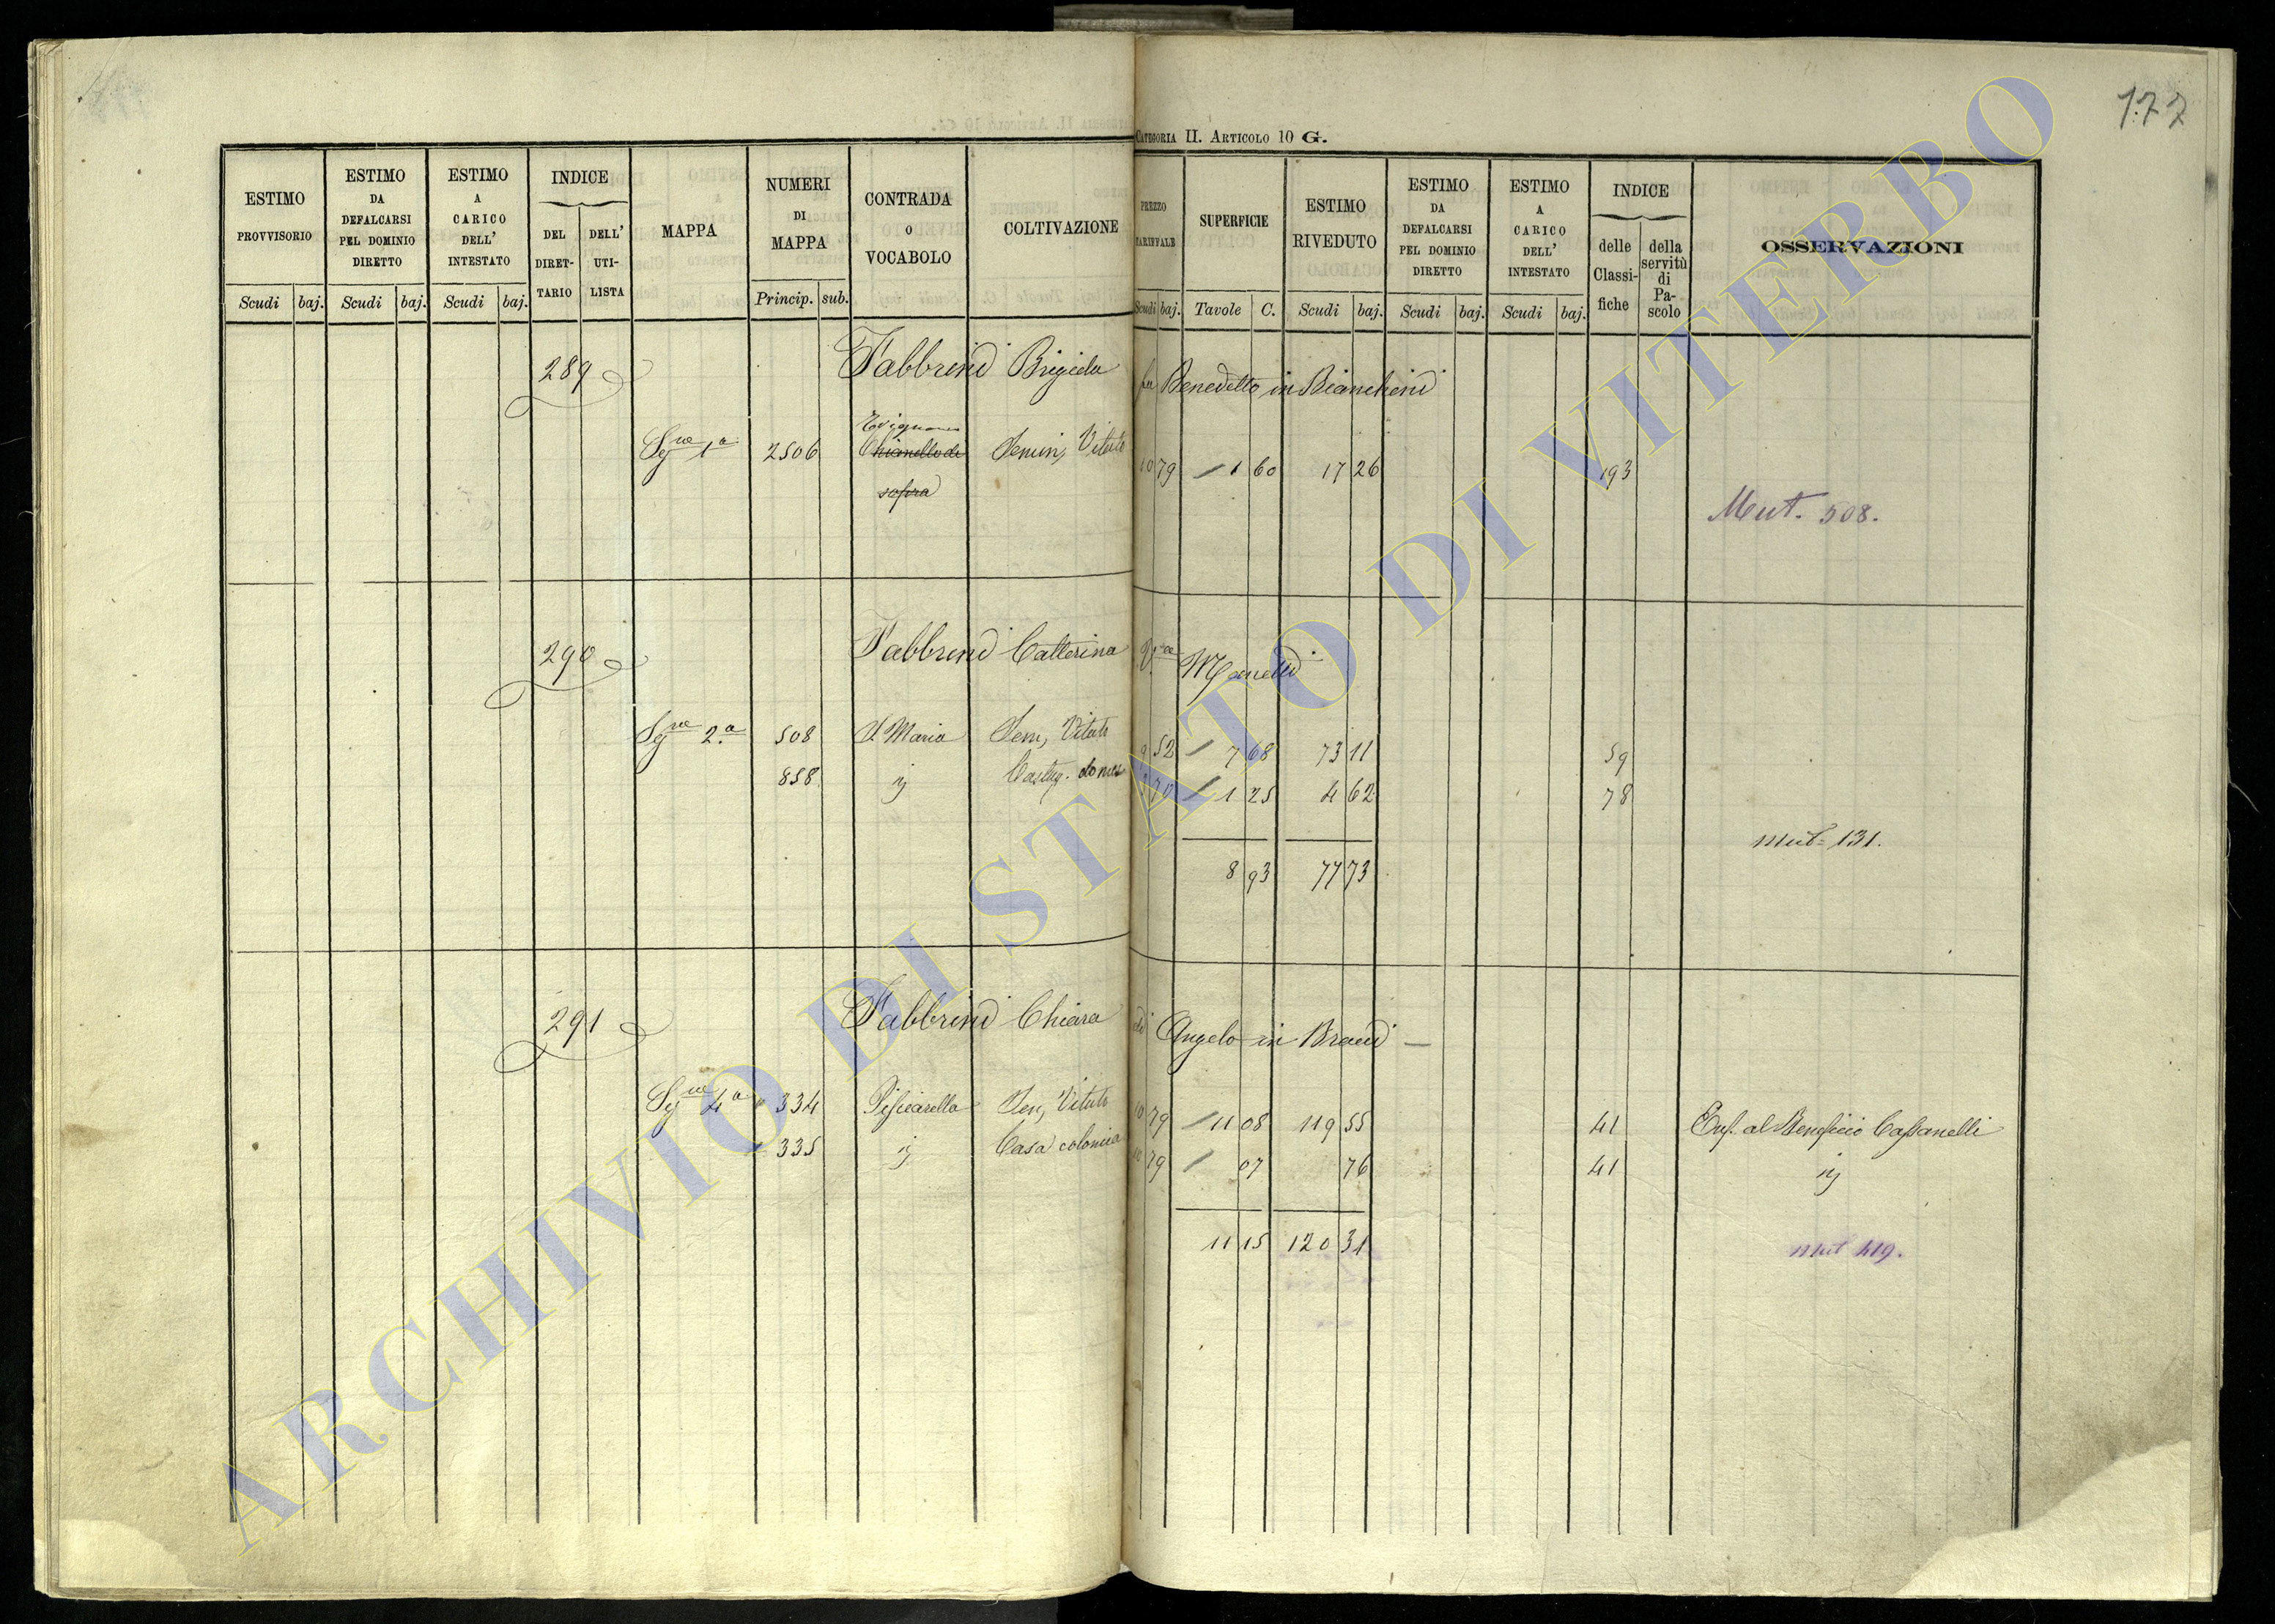 177
CATEGORIA II. ARTICOLO 10 G.
ESTIMO PROVVISORIO
ESTIMO DA DEFALCARSI PEL DOMINIO DIRETTO
ESTIMO A CARICO DELL' INTESTATO
INDICE
DEL DIRETTARIO
DELL' UTILISTA
MAPPA
NUMERI DI MAPPA
CONTRADA O VOCABOLO
COLTIVAZIONE
PREZZO TARIFFALE
SUPERFICIE
ESTIMO RIVEDUTO
ESTIMO DA DEFALCARSI PEL DOMINIO DIRETTO
ESTIMO A CARICO DELL' INTESTATO
INDICE
delle Classifiche
della servitù di Pascolo
OSSERVAZIONI
Scudi baj. Scudi baj. Scudi baj. Princip. sub. Scudi baj. Tavole C. Scudi baj. Scudi baj. Scudi baj.
289 Fabbrini Brigida fu Benedetto in Bianchini
Sez.ne 1a 2506 Chianello di sopra Semin, Vitato 10 79 1 60 17 26 193
Mut. 508.
290 Fabbrini Catterina V.va Manetti
Sez.ne 2.a 508 S. Maria Sem, Vitato 9 52 7 68 73 11 59
858 Castag. domes 70 1 25 4 62 78
Mut. 131.
8 93 77 73
291 Fabbrini Chiara di Angelo in Brandi
Sez.ne 4a 334 Pesciarella Sem, Vitato 10 79 11 08 119 55 41 Enf. al Beneficio Cassanelli
335 Casa colonica 10 79 07 76 41
11 15 120 31
Mut 419.
ARCHIVIO DI STATO DI VITERBO